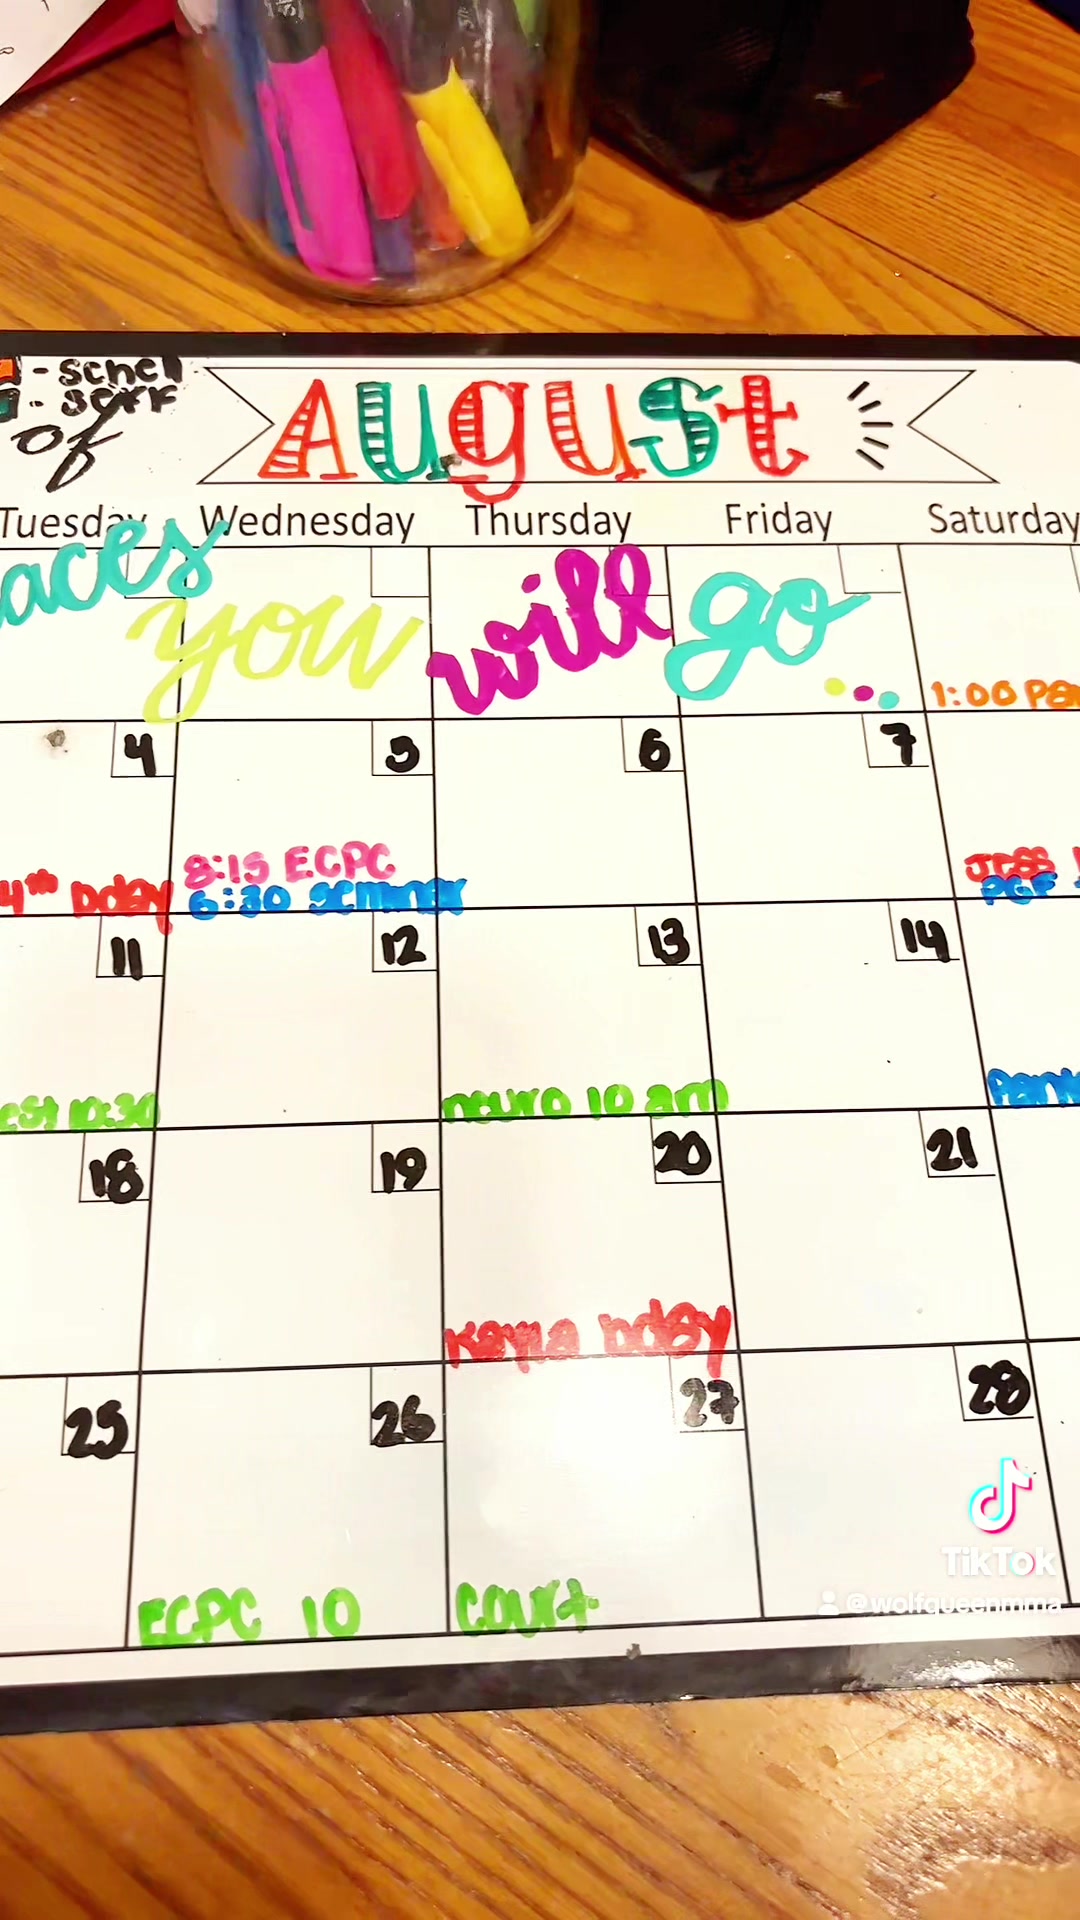 - schel
of
August
Tuesday Wednesday Thursday Friday Saturday
aces you will go...
1:00
4 5 6 7
8:15 ECPC
4th bday 6:30 seminar
Jess
11 12 13 14
est 10:30 neuro 10 am
18 19 20 21
Kayla bday
25 26 27 28
ECPC 10 court
TikTok
@wolfqueenmma